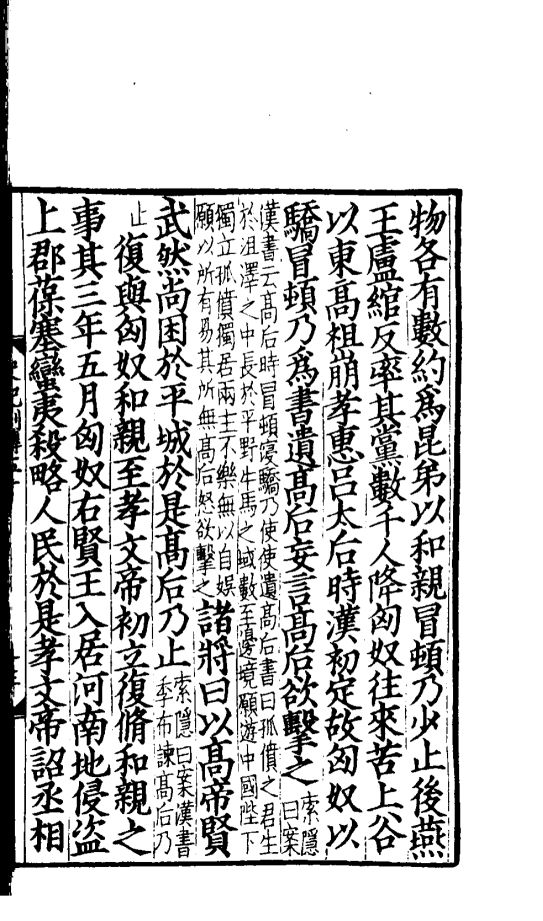 物各有數約爲昆弟以和親冒頓乃少止後燕
王盧綰反率其黨數千人降匈奴往來苦上谷
以東髙祖崩孝惠呂太后時漢初定故匈奴以
驕冒頓乃爲書遺髙后妄言髙后欲擊之
索隱
曰案
漢書云髙后時冒頓寖驕乃使使遺髙后書曰孤僨之君生
於沮澤之中長於平野牛馬之域數至邊境願遊中國陛下
獨立孤僨獨居兩主不樂無以自娱
願以所有易其所無髙后怒欲擊之
諸將曰以髙帝賢
武然尚困於平城於是髙后乃止
索隱曰案漢書
季布諫髙后乃
止
復與匈奴和親至孝文帝初立復脩和親之
事其三年五月匈奴右賢王入居河南地侵盜
上郡葆塞蠻夷殺略人民於是孝文帝詔丞相